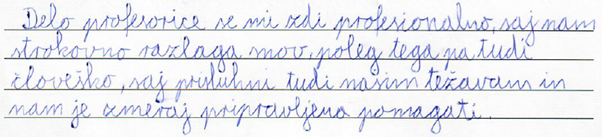 Delo profesorice se mi zdi profesionalno, saj nam
strokovno razlaga snov, poleg tega pa tudi
človeško, saj prisluhni tudi našim težavam in
nam je zmeraj pripravljena pomagati.